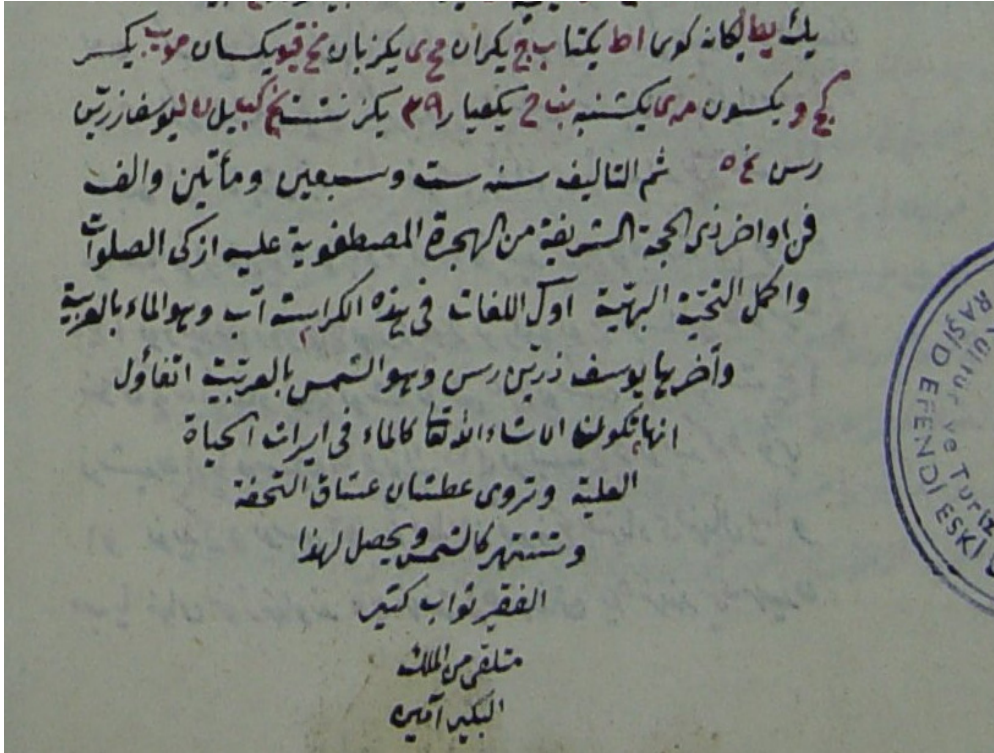 يك يط يكانه كوى اط يكتا ب ج يكران ح ى يكزبان نخ قيو يكسان موب يكسر
كج و يكسون مه ى يكشنبه بف ح يكعيار ٣٩ يكز نشت نخ كبيل ن يوسف زرين
رسن نح ٥ ثم التاليف سنه ست وسبعين ومأتين والف
فى اواخر ذى الحجة الشريفة من الهجرة المصطفوية عليه ازكى الصلوات
واكمل التحية البهية اول اللغات فى هذه الكراسة آب وهو الماء بالعربية
وآخرها يوسف زرين رسن وهو الشمس بالعربية اتفاؤل
انها تكون ان شاء الله تعا كالماء فى ايراث الحياة
العلية وتروى عطشان عشاق التحفة
وتشتهر كالشمس ويحصل لهذا
الفقير ثواب كثير
متلقى من الملك
الكبير آمين
KÜLTÜR ve TURİZ
RAŞİD EFENDİ ESKİ